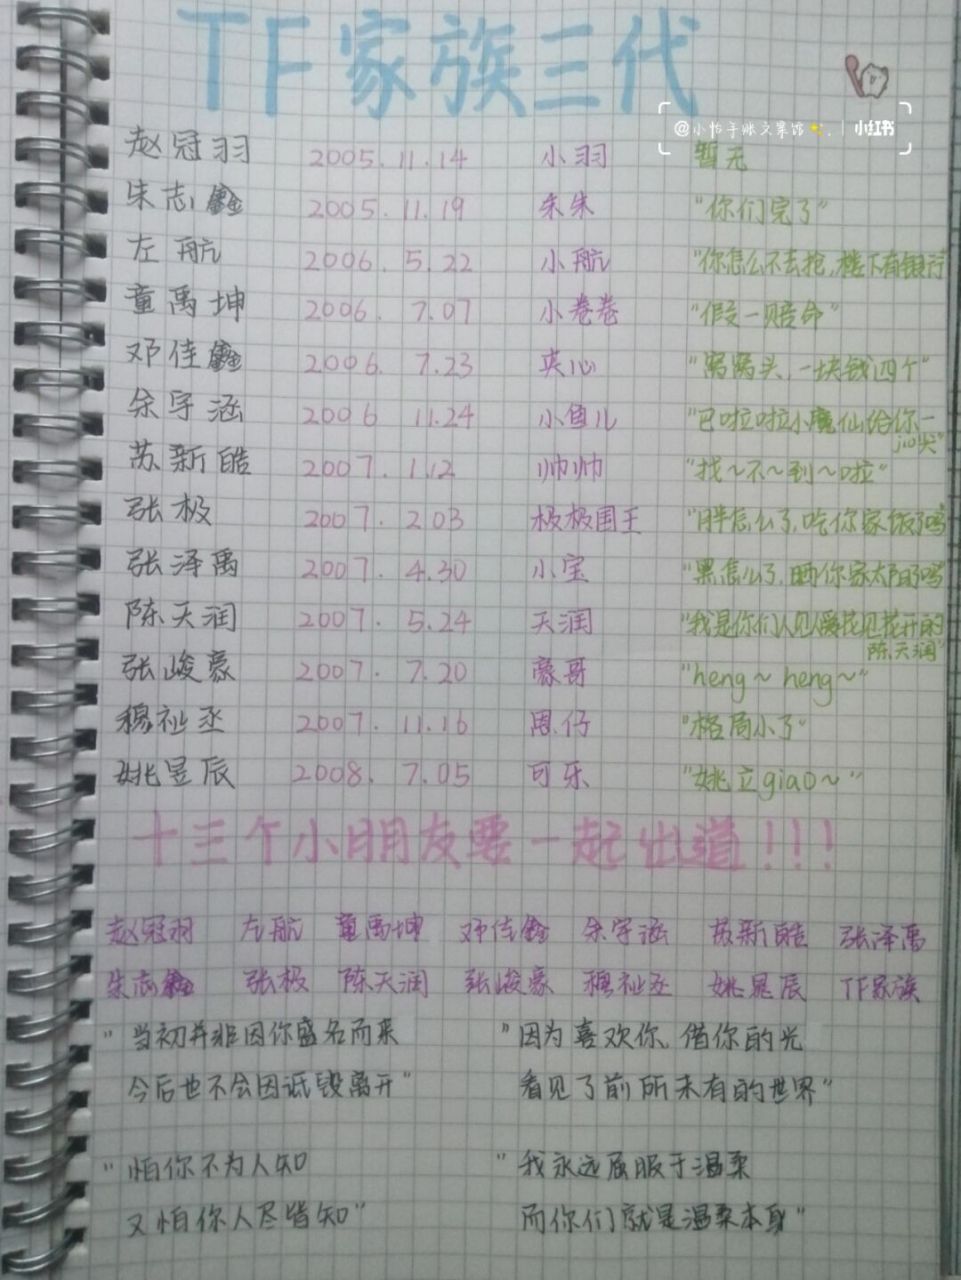 TF家族三代
@小怡手账文案馆✨. | 小红书
赵冠羽 2005.11.14 小羽 暂无
朱志鑫 2005.11.19 朱朱 "你们完了"
左航 2006.5.22 小航 "你怎么不去抢,楼下有银行
童禹坤 2006.7.07 小卷卷 "假一赔命"
邓佳鑫 2006.7.23 夹心 "窝窝头,一块钱四个"
余宇涵 2006 11.24 小鱼儿 "巴啦啦小魔仙给你一
jio哭"
苏新皓 2007.1.12 帅帅 "找~不~到~啦"
张极 2007.2.03 极极国王 "胖怎么了,吃你家饭了吗
张泽禹 2007.4.30 小宝 "黑怎么了,晒你家太阳了吗
陈天润 2007.5.24 天润 "我是你们人见人爱花见花开的
陈天润"
张峻豪 2007.7.20 豪哥 "heng~heng~"
穆祉丞 2007.11.16 恩仔 "格局小了"
姚昱辰 2008.7.05 可乐 "姚立giao~"
十三个小朋友要一起出道!!!
赵冠羽 左航 童禹坤 邓佳鑫 余宇涵 苏新皓 张泽禹
朱志鑫 张极 陈天润 张峻豪 穆祉丞 姚昱辰 TF家族
"当初并非因你盛名而来
今后也不会因诋毁离开"
"因为喜欢你,借你的光
看见了前所未有的世界"
"怕你不为人知
又怕你人尽皆知"
"我永远屈服于温柔
而你们就是温柔本身"